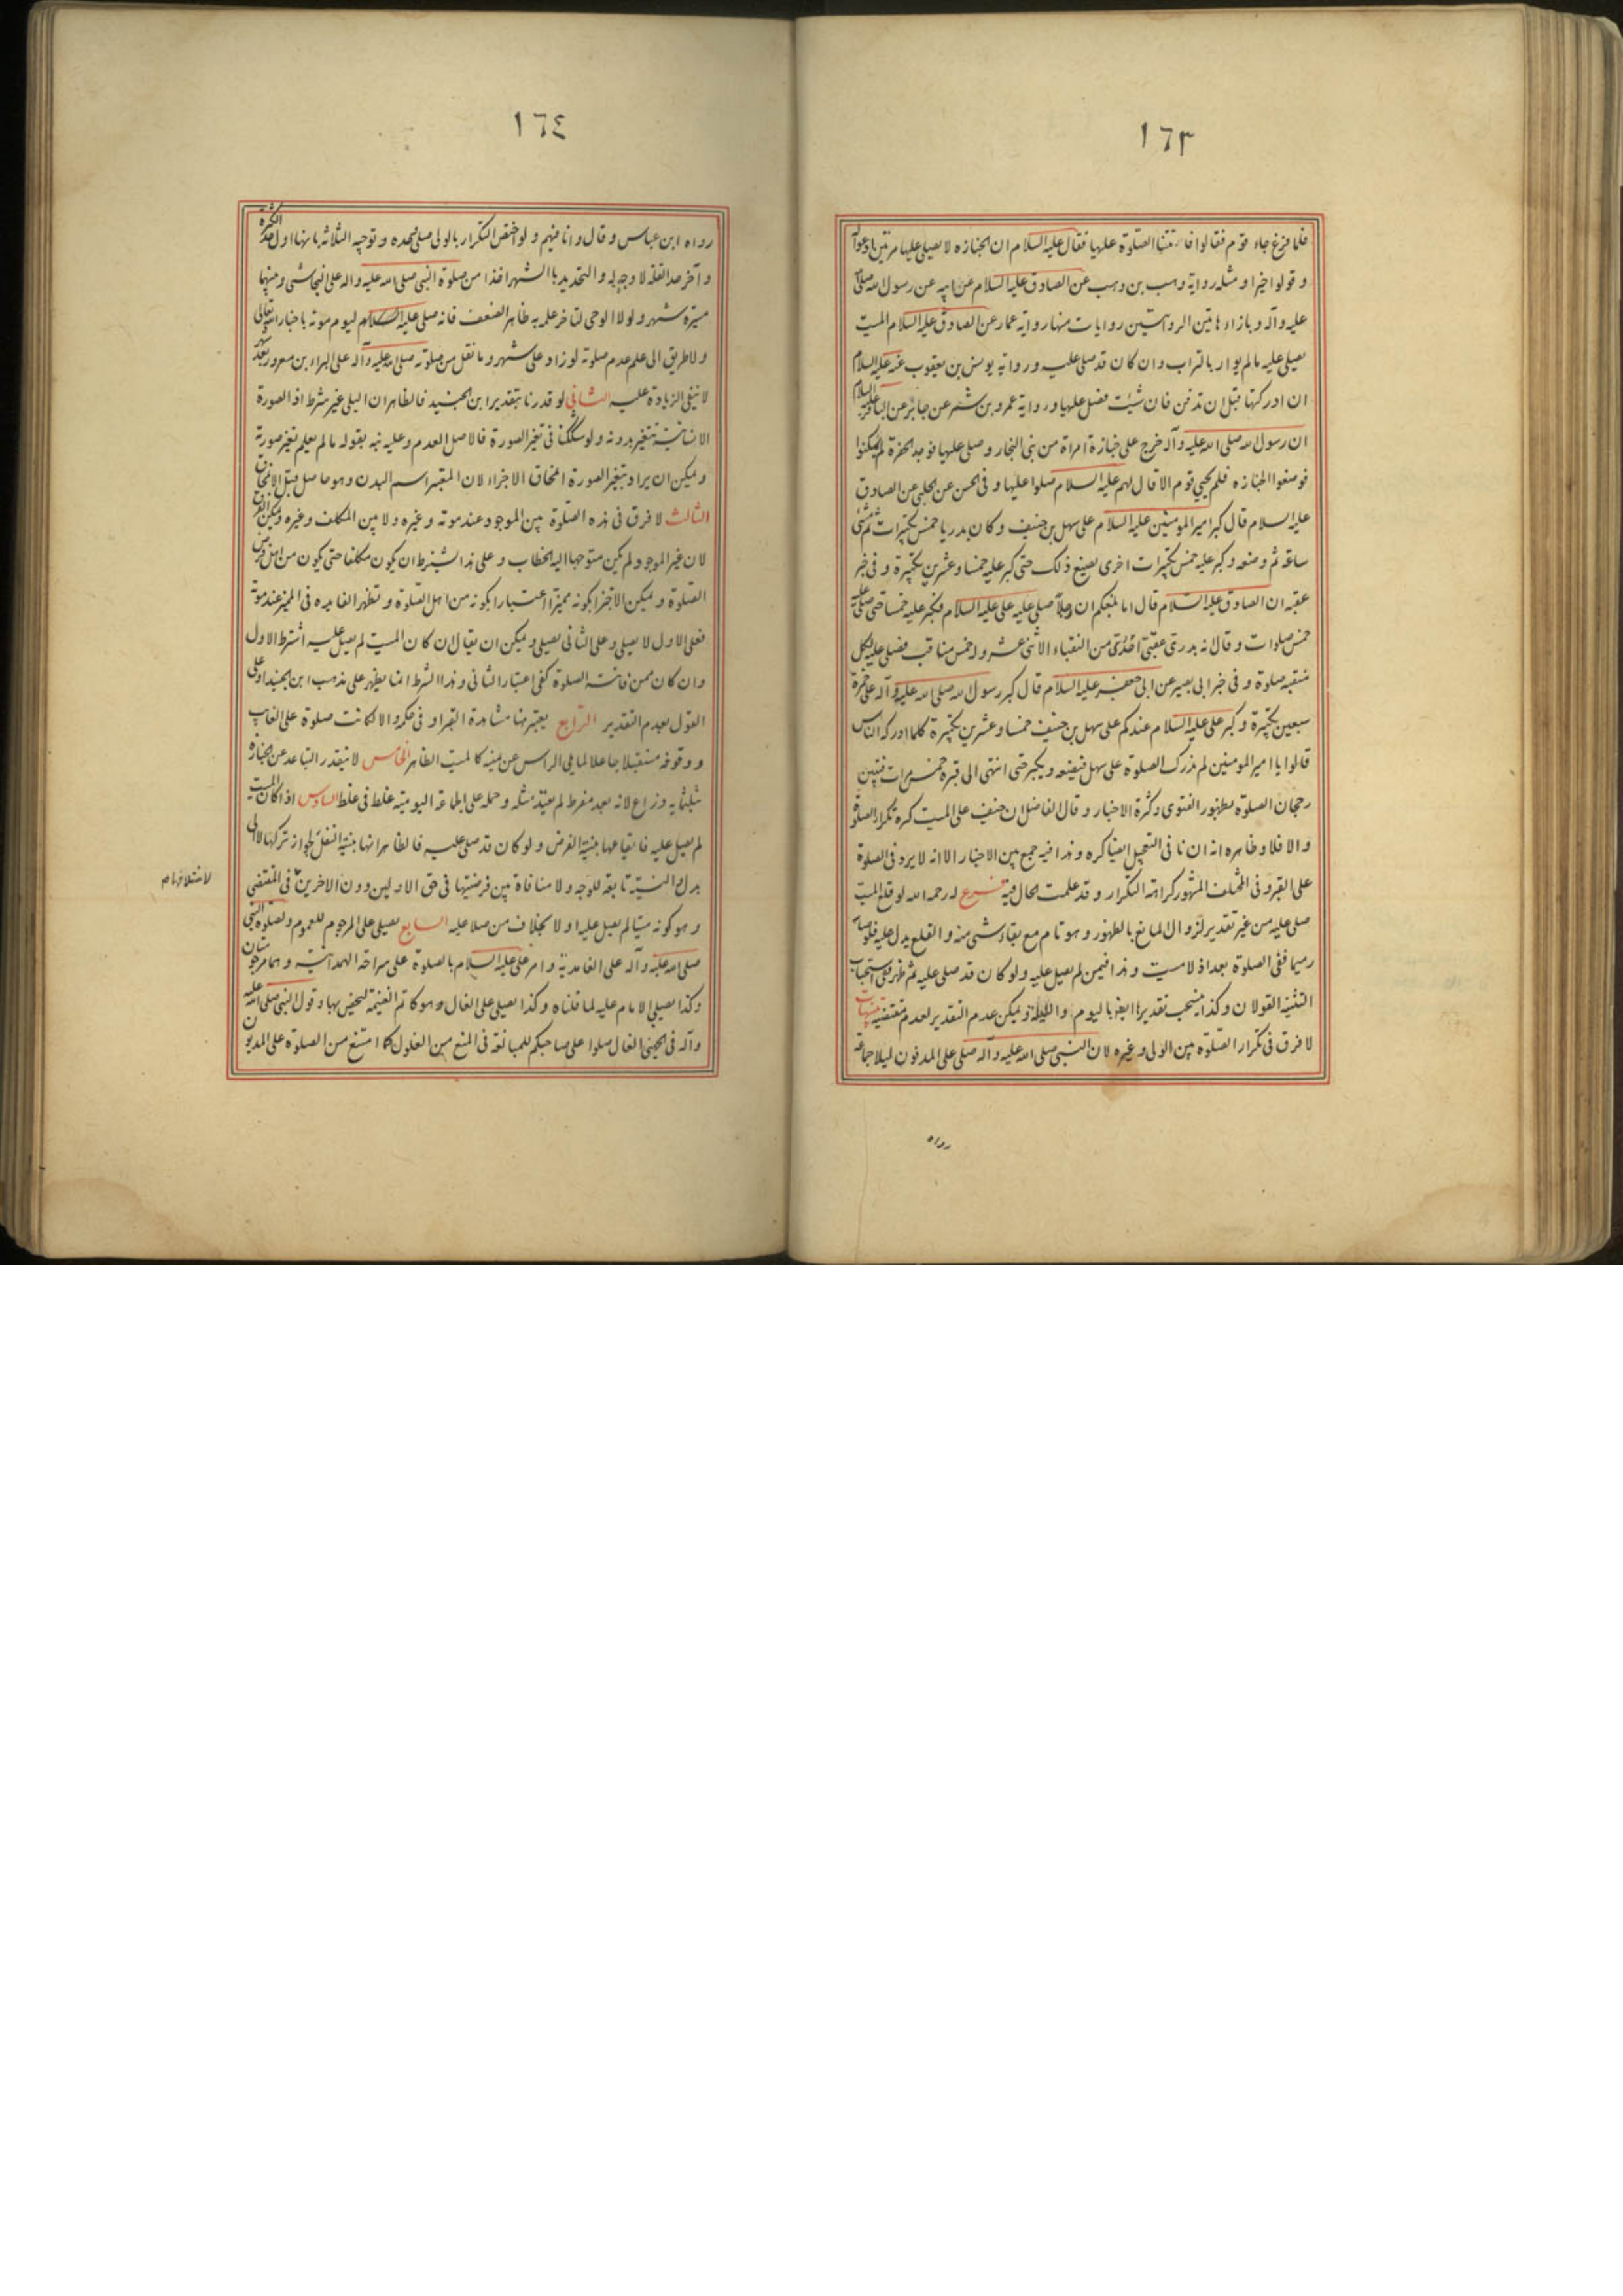 ١٦٣
فلما فرغ جاء قوم فقالوا فاتتنا الصلوة عليها فقال عليه السلام ان الجنازه لا يصلى عليها مرتين ادعوا له
و قولوا خيرا و مثله رواية وهب بن وهب عن الصادق عليه السلام عن ابيه عن رسول الله صلى الله
عليه وآله و بازاء هاتين الروايتين روايات منها رواية عمار عن الصادق عليه السلام الميت
يصلى عليه مالم يوار بالتراب وان كان قد صلى عليه ورواية يونس بن يعقوب عنه عليه السلام
ان ادركتها قبل ان تدفن فان شئت فصل عليها ورواية عمرو بن شمر عن جابر عن الباقر عليه السلام
ان رسول الله صلى الله عليه وآله خرج على جنازة امراة من بنى النجار وصلى عليها فوجد الحفرة لم يمكنوا
فوضعوا الجنازه فلم يجئ قوم الا قال لهم عليه السلام صلوا عليها و فى الحسن عن الحلبى عن الصادق
عليه السلام قال كبر امير المومنين عليه السلام على سهل بن حنيف وكان بدريا خمس تكبيرات ثم مشى
ساعة ثم وضعه وكبر عليه خمس تكبيرات اخرى يصنع ذلك حتى كبر عليه خمسا وعشرين تكبيرة و فى خبر
عقبه ان الصادق عليه السلام قال اما بلغكم ان رجلا صلى عليه على عليه السلام فكبر عليه خمسا حتى صلى عليه
خمس صلوات وقال انه بدرى عقبى احدى من النقباء الاثنى عشر وله خمس مناقب فصلى عليه لكل
منقبه صلوة و فى خبر ابى بصير عن ابى جعفر عليه السلام قال كبر رسول الله صلى الله عليه وآله على حمزة
سبعين تكبيرة وكبر على عليه السلام عندكم على سهل بن حنيف خمسا وعشرين تكبيرة كلما ادركه الناس
قالوا يا امير المومنين لم ندرك الصلوة على سهل فيضعه ويكبر حتى انتهى الى قبره خمس مرات فتبين
رجحان الصلوة بظهور الفتوى وكثرة الاخبار وقال الفاضل ان خيف على الميت كره تكرار الصلوة
والا فلا وظاهره انه ان نافى التعجيل ايضا كره وهذا فيه جمع بين الاخبار الا انه لا يرد فى الصلوة
على القبر وفى المختلف المشهور كراهة التكرار وقد علمت الحال فيه فرع له رحمه الله لو قلع الميت
صلى عليه من غير تقدير لزوال المانع بالظهور وهو تام مع بقاء شى منه و القلع يدل عليه فلو صار
رميما ففى الصلوة بعد اذ لا ميت وهذا فيمن لم يصل عليه ولو كان قد صلى عليه ثم ظهر ففى استحباب
التثنيه القولان وكذا ينسحب تقديرنا ايضا باليوم والليلة ويمكن عدم التقدير لعدم مقتضيه تنبيهات
لا فرق فى تكرار الصلوة بين الولى وغيره لان النبى صلى الله عليه وآله صلى على المدفون ليلا جماعة
رواه
١٦٤
رواه ابن عباس وقال وانا فيهم ولو اختص التكرار بالولى صلى وحده وتوجيه الثلاثه بانها اول حد الكثرة
و آخر حد القله لا وجه له والتحديد بالشهر اخذا من صلوة النبى صلى الله عليه واله على النجاشى وبينهما
مسيرة شهر ولولا الوحى لتاخر علمه به ظاهر الضعف فانه صلى عليه السلام ليوم موته باخبار الله تعالى
ولا طريق الى علم عدم صلوته لو زاد على شهر وما نقل من صلوته صلى الله عليه وآله على البراء بن معرور بعد شهر
لا ينفى الزيادة عليه الثانى لو قدرنا بتقدير ابن الجنيد فالظاهر ان البلى غير شرط اذ الصورة
الانسانية تتغير بدونه ولو شككنا فى تغير الصورة فالاصل العدم وعليه نبه بقوله ما لم يعلم تغير صورته
ويمكن ان يراد بتغير الصورة امحاق الاجزاء لان المعتبر اسم البدن وهو حاصل قبل الامحاق
الثالث لا فرق فى هذه الصلوة بين الموجود عند موته وغيره ولا بين المكلف وغيره ويمكن المنع
لان غير الموجود لم يكن متوجها اليه الخطاب وعلى هذا يشترط ان يكون مكلفا حتى يكون من اهل فرض
الصلوة ويمكن الاجتزا بكونه مميزا اعتبارا بكونه من اهل الصلوة و تظهر الفايده فى المميز عند موته
فعلى الاول لا يصلى وعلى الثانى يصلى ويمكن ان يقال ان كان الميت لم يصل عليه اشترط الاول
وان كان ممن فاتته الصلوة كفى اعتبار الثانى وهذا الشرط انما يظهر على مذهب ابن الجنيد او على
القول بعدم التقدير الرابع يعتبر هنا مشاهدة القبر او فى حكمه والا لكانت صلوة على الغايب
ووقوفه مستقبلا جاعلا لما يلى الراس عن يمينه كالميت الظاهر الخامس لا يتقدر التباعد عن الجنازة
بثلثمايه ذراع لانه بعد مفرط لم يعتد مثله وحمله على الجماعة اليوميه غلط فى غلط السادس اذا كان الميت
لم يصل عليه فايقاعها بنية الفرض ولو كان قد صلى عليه فالظاهر انها بنية النفل لجواز تركها لا الى
بدل والنية تابعة للوجه ولا منافاة بين فرضيتها فى حق الاولين دون الاخرين فى المقتضى
لاختلافهما
وهو كونه ميتا لم يصل عليه اولا بخلاف من صلا عليه السابع يصلى على المرجوم للعموم ولصلوة النبى
صلى الله عليه وآله على الغامدية وامر على عليه السلام بالصلوة على سراحة الهمدانية وهما مرجومتان
وكذا يصلى الامام عليه لما قلناه وكذا يصلى على الغال وهو كاتم الغنيمة ليختص بها وقول النبى صلى الله عليه
وآله فى الجهنى الغال صلوا على صاحبكم للمبالغة فى المنع من الغلول كما امتنع من الصلوة على المديون